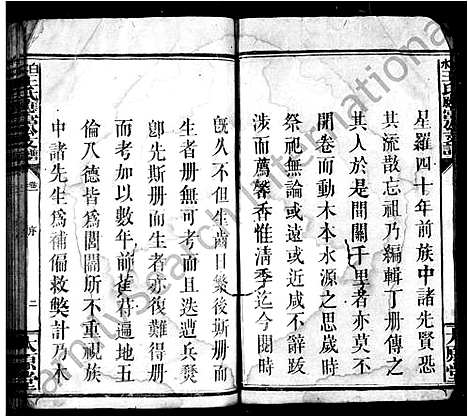 星羅四十年前族中諸先賢恐
其流散忘祖乃編輯丁册傳之
其人於是間關千里者亦莫不
開卷而動木本水源之思歲時
祭祀無論或遠或近咸不辭跋
涉而薦馨香惟清季迄今閱時
既久不但生齒日繁後斯册而
生者册無可考而且迭遭兵燹
卽先斯册而生者亦復難得册
而考加以數年前萑苻遍地五
倫八德皆爲閣閣所不重視族
中諸先生爲補偏救獘計乃木
王氏
支譜
卷
序
二
太原堂
FamilySearch International